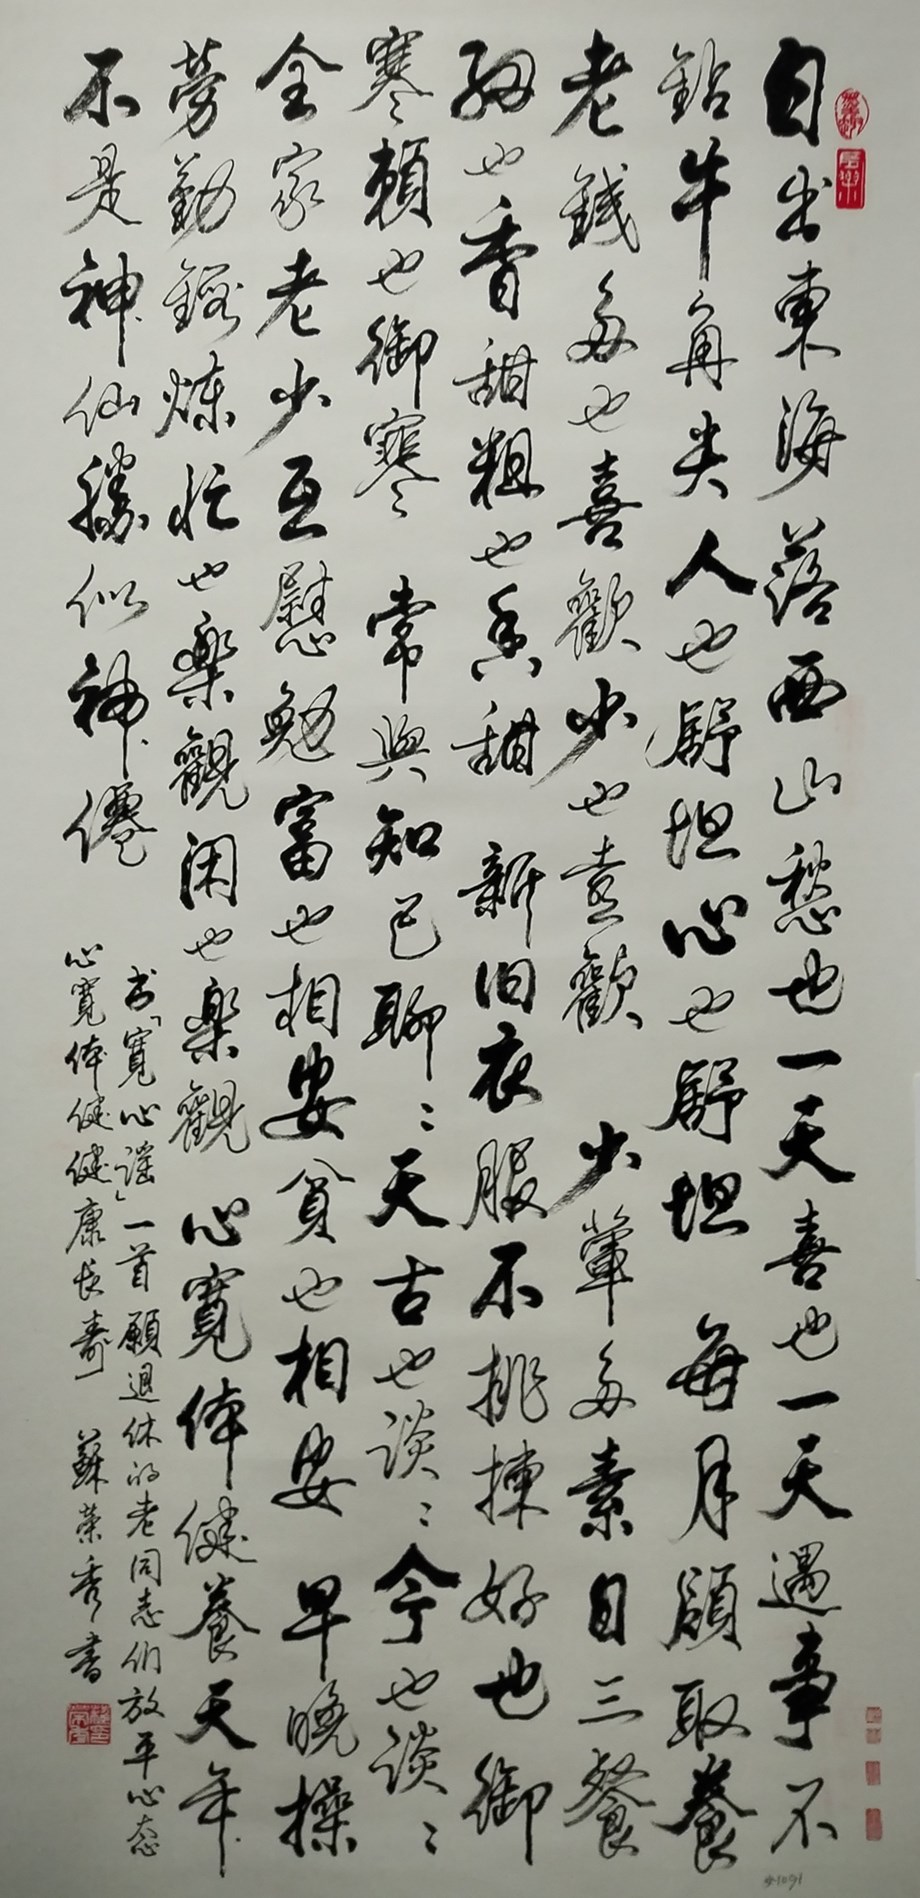 日出東海落西山愁也一天喜也一天遇事不
鈷牛角尖人也舒坦心也舒坦 每月領取養
老錢多也喜歡少也喜歡 少葷多素日三餐
細也香甜粗也香甜 新旧衣服不挑揀好也御
寒賴也御寒 常與知己聊〻天古也談〻今也談〻
全家老少互慰勉富也相安貧也相安 早晚操
劳勤鍛炼忙也樂觀闲也樂觀 心寬体健養天年
不是神仙勝似神僊
书「寬心謡」一首願退休的老同志们放平心态
心寬体健健康长壽 蘇荣秀書